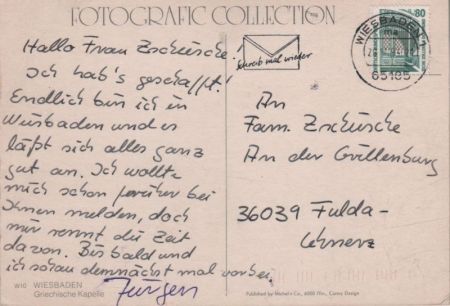 FOTOGRAFIC COLLECTION
Hallo Frau Zschüsche!
Ich hab's geschafft!
Endlich bin ich in
Wiesbaden und es
läßt sich alles ganz
gut an. Ich wollte
mich schon früher bei
Ihnen melden, doch
mir rennt die Zeit
davon. Bis bald und
ich schau demnächst mal vorbei.
Jürgen
W10 WIESBADEN
Griechische Kapelle
Schreib mal wieder
WIESBADEN 1
65185
80
An
Fam. Zschüsche
An der Grillenburg
36039 Fulda-
Lehnerz
Published by Michel + Co., 6000 Ffm.,